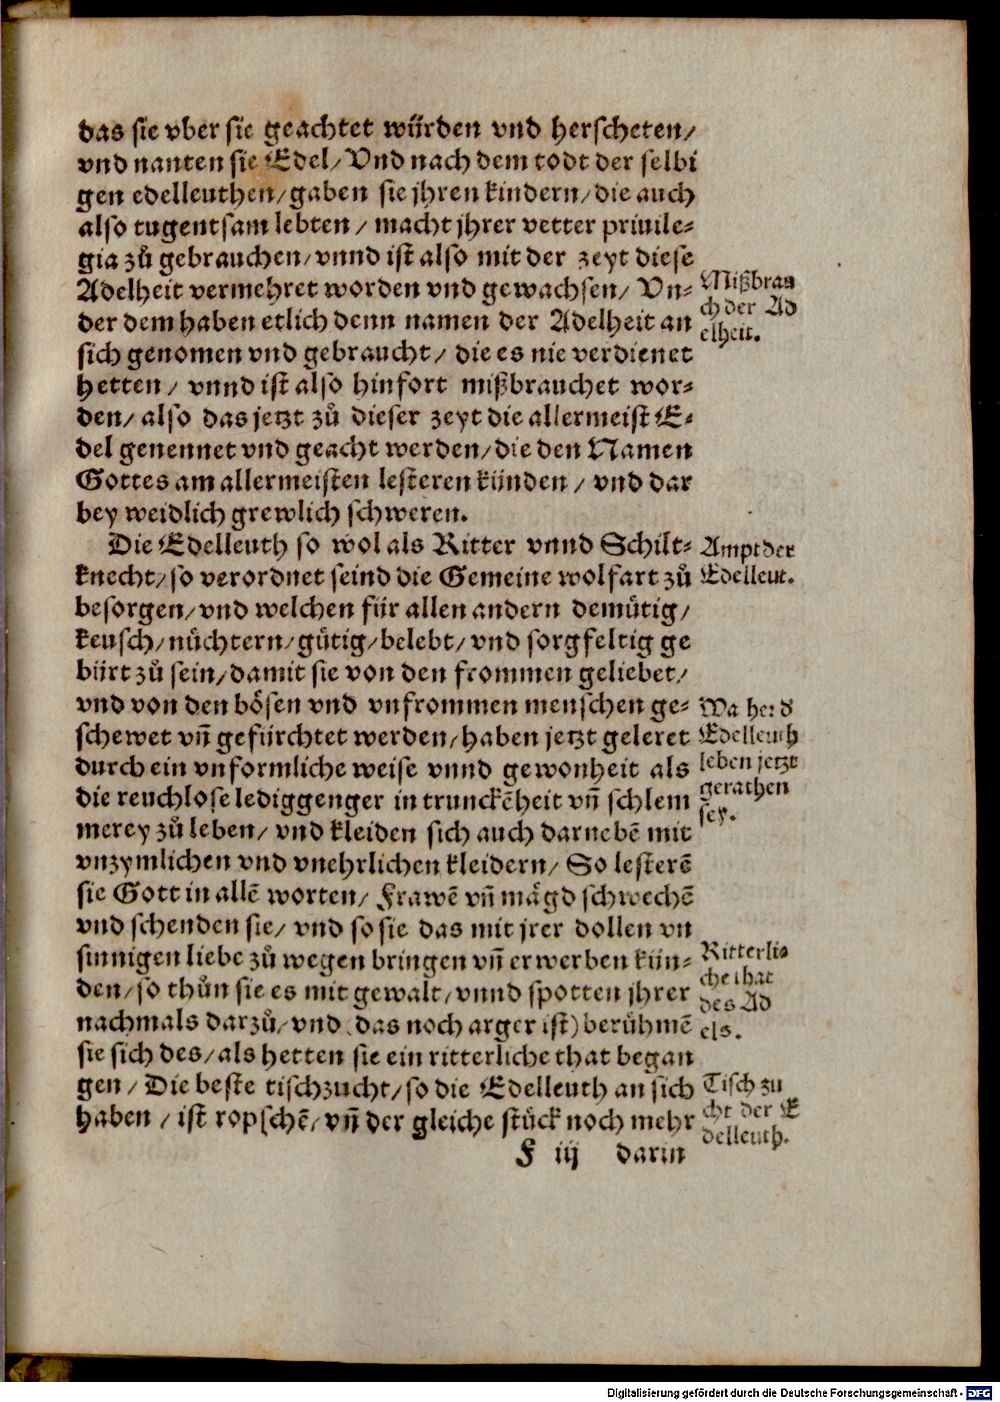 das sie vber sie geachtet würden vnd herscheten/
vnd nanten sie Edel/ Vnd nach dem todt der selbi
gen edelleuthen/ gaben sie jhren kindern/ die auch
also tugentsam lebten/ macht jhrer vetter priuile-
gia zů gebrauchen/ vnnd ist also mit der zeyt diese
Adelheit vermehret worden vnd gewachsen/ Vn-
der dem haben etlich denn namen der Adelheit an
sich genomen vnd gebraucht/ die es nie verdienet
hetten/ vnnd ist also hinfort mißbrauchet wor-
den/ also das jetzt zů dieser zeyt die allermeist E-
del genennet vnd geacht werden/ die den Namen
Gottes am allermeisten lesteren künden/ vnd dar
bey weidlich grewlich schweren.
Mißbrau
ch der Ad
elheit.
Die Edelleuth so wol als Ritter vnnd Schilt-
knecht/ so verordnet seind die Gemeine wolfart zů
besorgen/ vnd welchen für allen andern demütig/
keusch/ nüchtern/ gütig/ belebt/ vnd sorgfeltig ge
bürt zů sein/ damit sie von den frommen geliebet/
vnd von den bösen vnd vnfrommen menschen ge-
schewet vñ gefürchtet werden/ haben jetzt geleret
durch ein vnformliche weise vnnd gewonheit als
die reuchlose lediggenger in trunckẽheit vñ schlem
merey zů leben/ vnd kleiden sich auch darnebẽ mit
vnzymlichen vnd vnehrlichen kleidern/ So lesterẽ
sie Gott in allẽ worten/ Frawẽ vñ mägd schwechẽ
vnd schenden sie/ vnd so sie das mit jrer dollen vn
sinnigen liebe zů wegen bringen vñ erwerben kün-
den/ so thůn sie es mit gewalt/ vnnd spotten jhrer
nachmals darzů/ vnd (das noch arger ist) berühmẽ
sie sich des/ als hetten sie ein ritterliche that began
gen/ Die beste tischzucht/ so die Edelleuth an sich
haben/ ist ropschẽ/ vñ der gleiche stück noch mehr
Ampt der
Edelleut.
Wa her d
Edelleuth
leben jetzt
gerathen
sey.
Ritterli-
che that
des Ad
els.
Tisch zu
cht der E
delleuth.
F iij darin
Digitalisierung gefördert durch die Deutsche Forschungsgemeinschaft - DFG